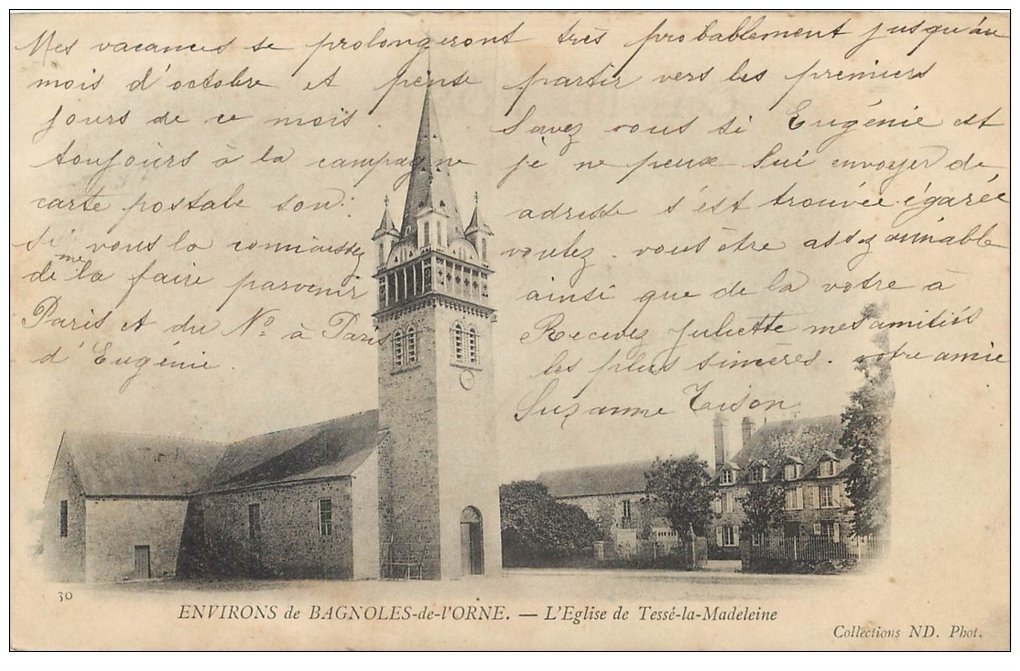 Mes vacances se prolongeront très probablement jusqu'au
mois d'octobre et pense partir vers les premiers
jours de ce mois. Savez vous si Eugénie est
toujours à la campagne je ne peux lui envoyer de
carte postale son adresse s'est trouvée égarée
si vous la connaissez voulez vous être assez aimable
de me la faire parvenir ainsi que de la votre à
Paris et du No à Paris Recevez Juliette mes amitiés
d'Eugénie. les plus sincères. votre amie
Suzanne Tison
30
ENVIRONS de BAGNOLES-de-l'ORNE. — L'Eglise de Tessé-la-Madeleine
Collections ND. Phot.